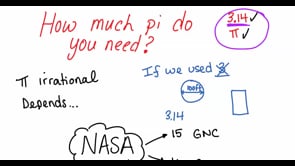 How much pi do
you need?
3.14 ✓
π ✓
π irrational
Depends...
If we used
100ft
3.14
NASA
15 GNC